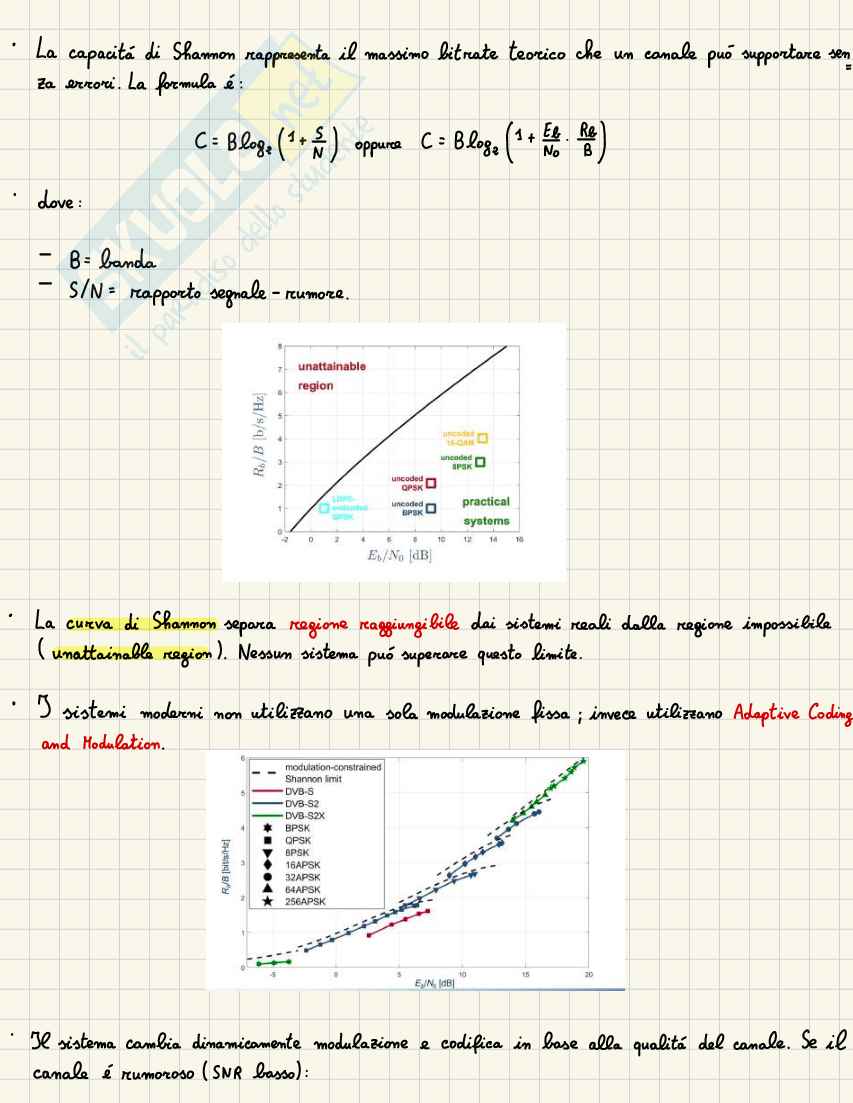 · La capacitá di Shannon rappresenta il massimo bitrate teorico che un canale puó supportare sen
za errori. La formula é:
C = B log₂ (1 + S/N) oppure C = B log₂ (1 + Eb/No · Rb/B)
· dove:
– B = banda
– S/N = rapporto segnale - rumore.
SKUOLA.net
il paradiso dello studente
8
7
6
5
4
3
2
1
0
Rb/B [b/s/Hz]
unattainable
region
uncoded
16-QAM
uncoded
8PSK
uncoded
QPSK
uncoded
BPSK
LDPC-
encoded
QPSK
practical
systems
-2 0 2 4 6 8 10 12 14 16
Eb/N0 [dB]
· La curva di Shannon separa regione raggiungibile dai sistemi reali dalla regione impossibile
(unattainable region). Nessun sistema puó superare questo limite.
· I sistemi moderni non utilizzano una sola modulazione fissa ; invece utilizzano Adaptive Coding
and Modulation.
6
5
4
3
2
1
0
Rb/B [bit/s/Hz]
modulation-constrained
Shannon limit
DVB-S
DVB-S2
DVB-S2X
BPSK
QPSK
8PSK
16APSK
32APSK
64APSK
256APSK
-5 0 5 10 15 20
Es/N0 [dB]
· Il sistema cambia dinamicamente modulazione e codifica in base alla qualitá del canale. Se il
canale é rumoroso (SNR basso):